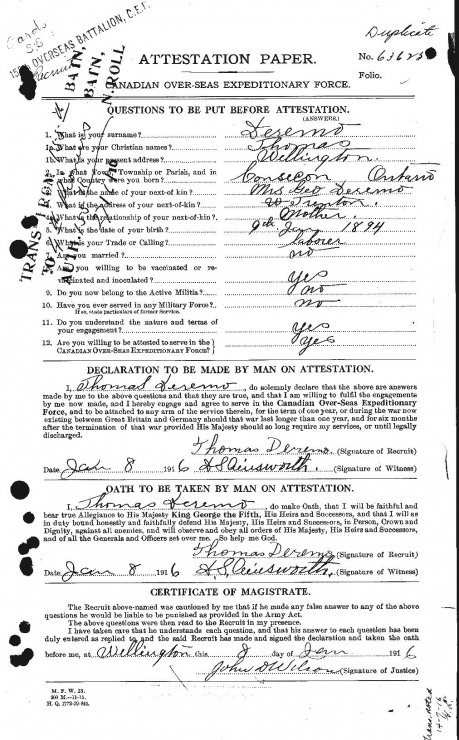 Duplicate
Card
OVERSEAS BATTALION, C.E.F.
Recruit
ATTESTATION PAPER.
No.
Folio.
CANADIAN OVER-SEAS EXPEDITIONARY FORCE.
QUESTIONS TO BE PUT BEFORE ATTESTATION.
(ANSWERS.)
1. What is your surname? Deremo
1a. What are your Christian names? Thomas
1b. What is your present address? Wellington.
2. In what Town, Township or Parish, and in
what Country were you born? Consecon Ontario
What is the name of your next-of-kin? Mrs Geo Deremo
What is the address of your next-of-kin? Trenton.
What is the relationship of your next-of-kin? Mother.
5. What is the date of your birth? 9th Jany 1894
6. What is your Trade or Calling? laborer
Are you married? no
Are you willing to be vaccinated or re-
vaccinated and inoculated? Yes
9. Do you now belong to the Active Militia? no
10. Have you ever served in any Military Force? no
If so, state particulars of former Service.
11. Do you understand the nature and terms of
your engagement? Yes
12. Are you willing to be attested to serve in the
CANADIAN OVER-SEAS EXPEDITIONARY FORCE? Yes
TRANS FROM
BATN,
BATN,
AUTH.
N. ROLL
DECLARATION TO BE MADE BY MAN ON ATTESTATION.
I, Thomas Deremo, do solemnly declare that the above are answers
made by me to the above questions and that they are true, and that I am willing to fulfil the engagements
by me now made, and I hereby engage and agree to serve in the Canadian Over-Seas Expeditionary
Force, and to be attached to any arm of the service therein, for the term of one year, or during the war now
existing between Great Britain and Germany should that war last longer than one year, and for six months
after the termination of that war provided His Majesty should so long require my services, or until legally
discharged.
Thomas Deremo (Signature of Recruit)
Date Jan 8 1916 Ainsworth. (Signature of Witness)
OATH TO BE TAKEN BY MAN ON ATTESTATION.
I, Thomas Deremo, do make Oath, that I will be faithful and
bear true Allegiance to His Majesty King George the Fifth, His Heirs and Successors, and that I will as
in duty bound honestly and faithfully defend His Majesty, His Heirs and Successors, in Person, Crown and
Dignity, against all enemies, and will observe and obey all orders of His Majesty, His Heirs and Successors,
and of all the Generals and Officers set over me. So help me God.
Thomas Deremo (Signature of Recruit)
Date Jan 8 1916 Ainsworth (Signature of Witness)
CERTIFICATE OF MAGISTRATE.
The Recruit above-named was cautioned by me that if he made any false answer to any of the above
questions he would be liable to be punished as provided in the Army Act.
The above questions were then read to the Recruit in my presence.
I have taken care that he understands each question, and that his answer to each question has been
duly entered as replied to, and the said Recruit has made and signed the declaration and taken the oath
before me, at Wellington this 8 day of Jan 1916
John D Wilson (Signature of Justice)
M. F. W. 23.
H. Q. 1772-39-842.